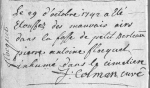 Le 29 d'octobre 1742 a été
étouffé des mauvais airs
dans la fosse de petit
pierre antoine
inhumé dans le cimetière
J: Colmon curé